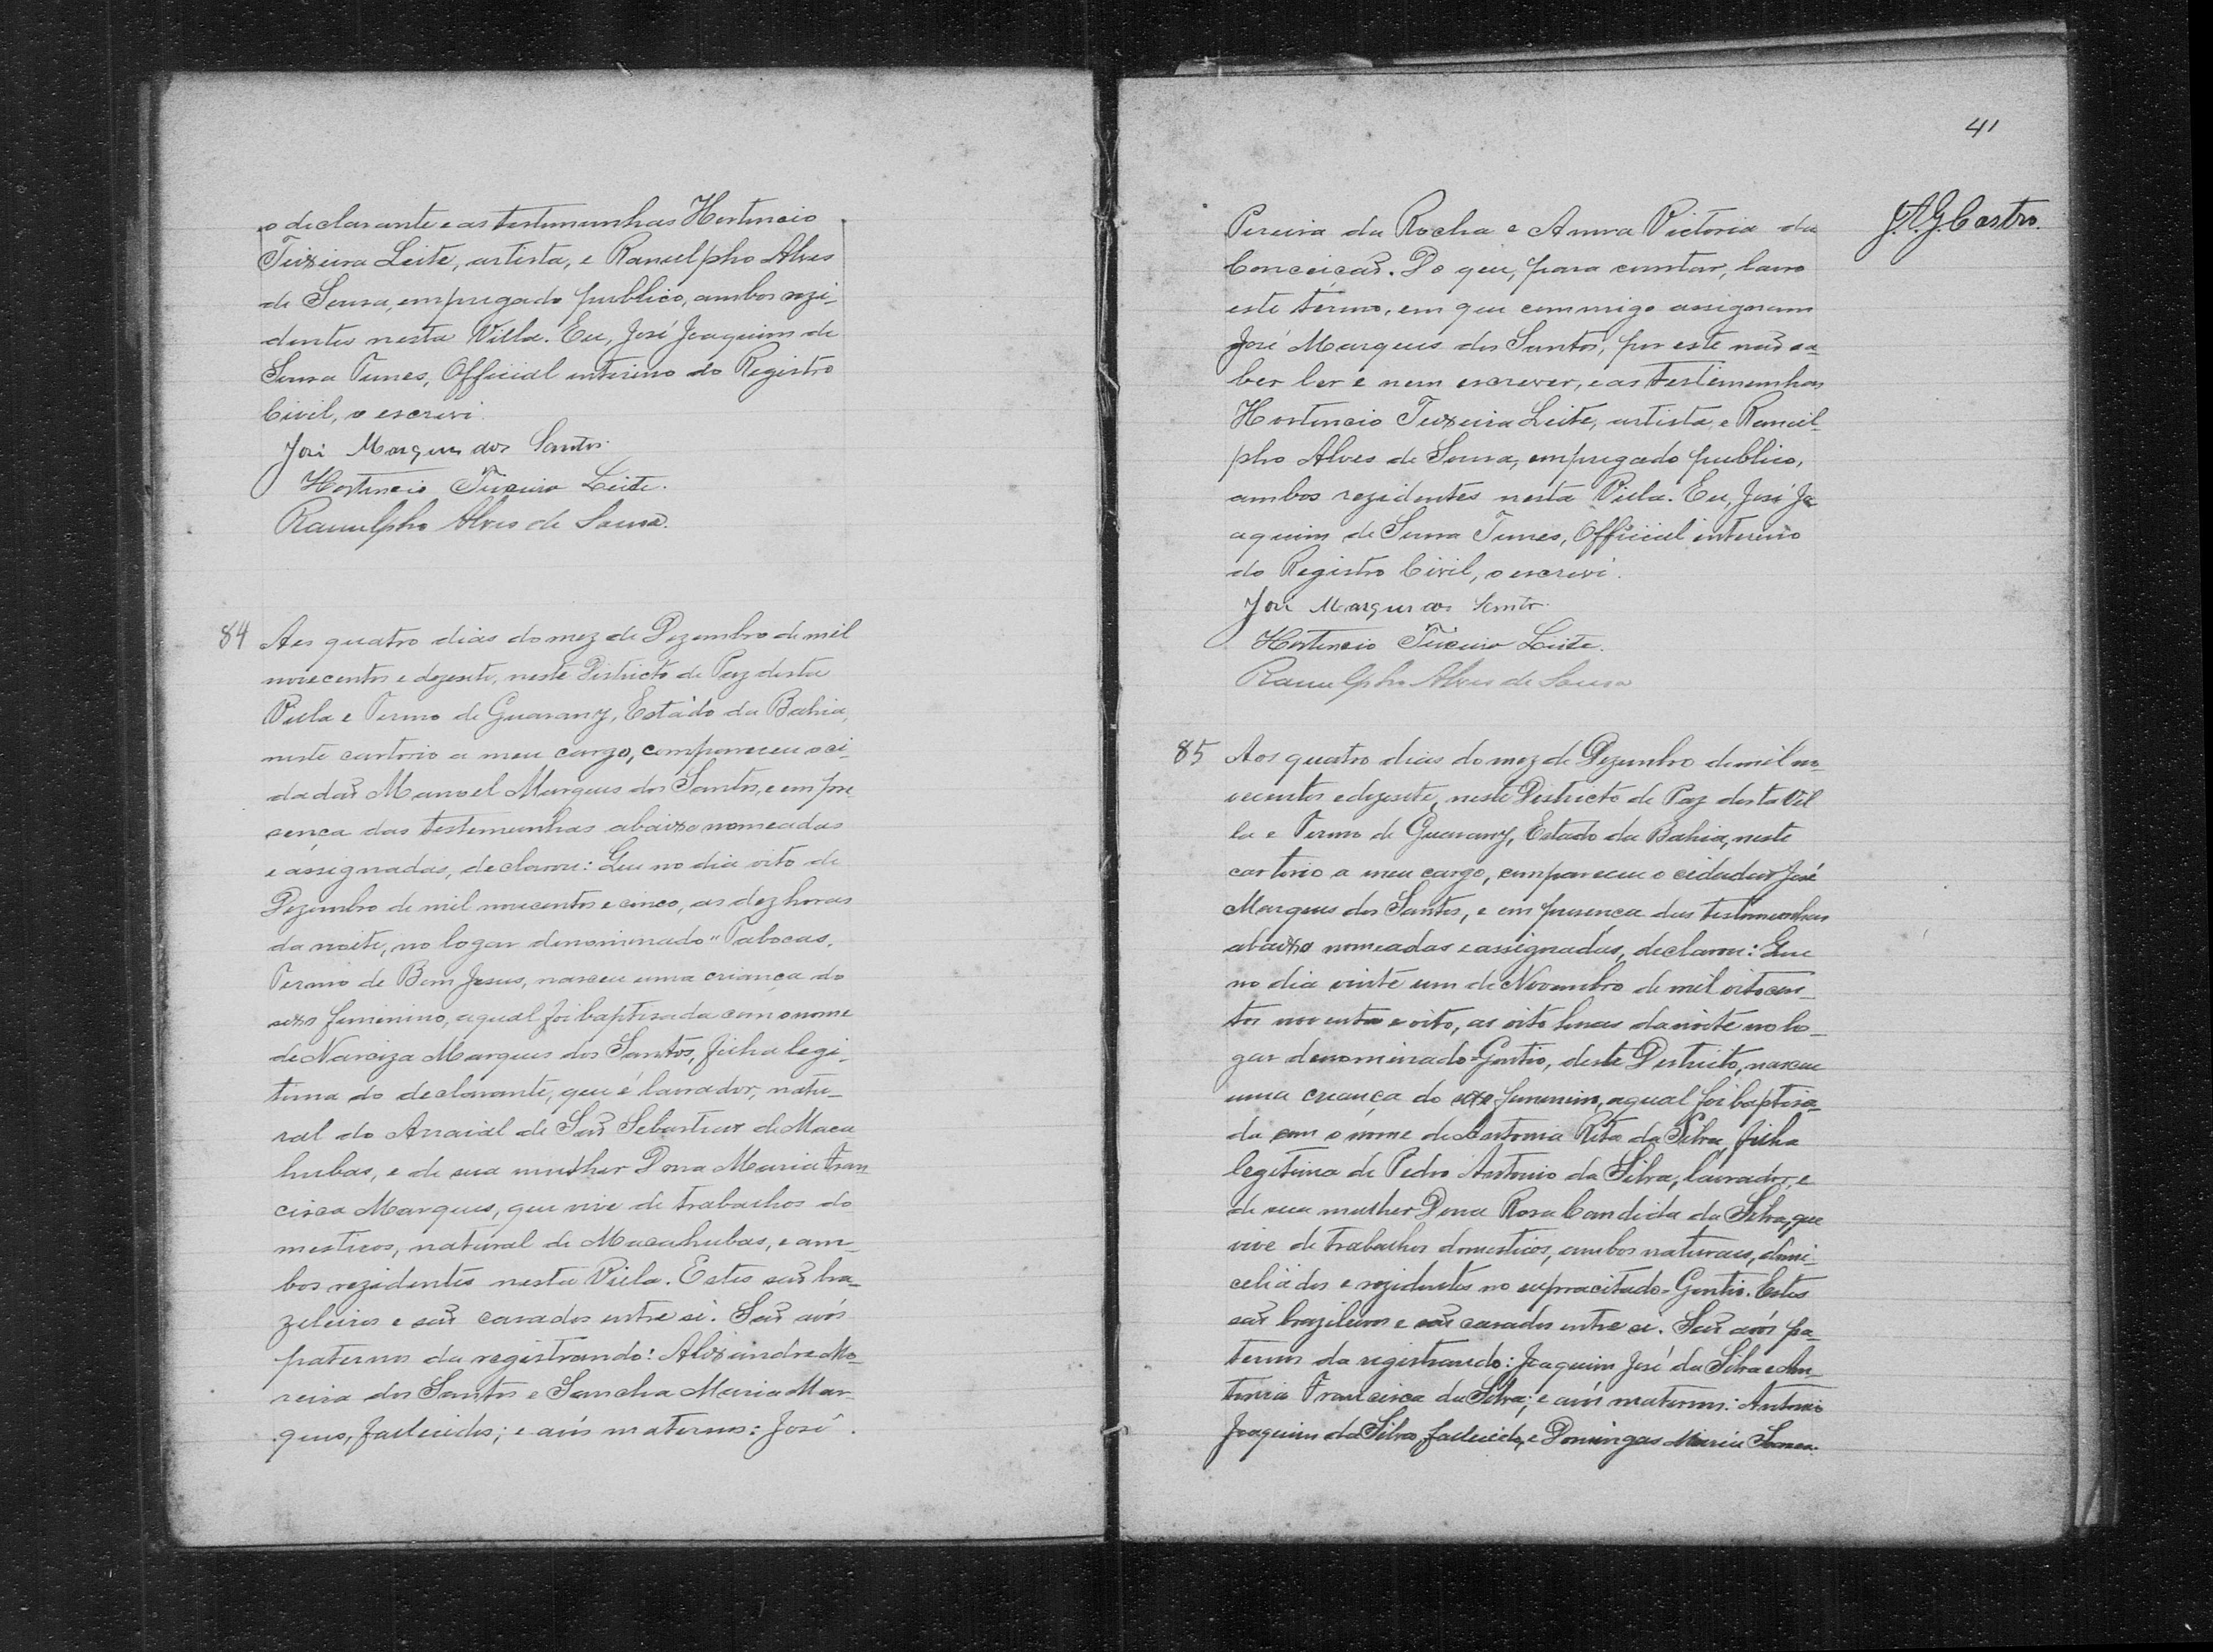 o declarante e as testemunhas Hortencio
Teixeira Leite, artista, e Ranulpho Alves
de Sousa, empregado publico, ambos rezi-
dentes nesta Villa. Eu, José Joaquim de
Sousa Tunes, Official interino do Registro
Civil, o escrevi.
José Marques dos Santos.
Hortencio Teixeira Leite.
Ranulpho Alves de Sousa.
84 Aos quatro dias do mez de Dezembro de mil
novecentos e dezesete, neste Districto de Paz desta
Villa e Termo de Guarany, Estado da Bahia,
neste cartorio a meu cargo, compareceu o ci-
dadão Manoel Marques dos Santos, e em pre
sença das testemunhas abaixo nomeadas
e assignadas, declarou: Que no dia oito de
Dezembro de mil novecentos e cinco, as dez horas
da noite, no logar denominado "Tabocas,
Termo de Bom Jesus, nasceu uma criança do
sexo feminino, a qual foi baptisada com o nome
de Narciza Marques dos Santos, filha legi-
tima do declarante, que é lavrador, natu-
ral do Arraial de São Sebastião de Maca
hubas, e de sua mulher Dona Maria Fran
cisca Marques, que vive de trabalhos do
mesticos, natural de Macahubas, e am-
bos rezidentes nesta Villa. Estes são bra-
zileiros e são casados entre si. São avós
paternos da registrando: Alexandre Mo-
reira dos Santos e Sancha Maria Mar-
ques, fallecidos; e avós maternos: José
41
J.A.G. Castro.
Pereira da Rocha e Anna Victoria da
Conceição. Do que, para constar, lavro
este termo, em que commigo assignam
José Marques dos Santos, por este não sa-
ber ler e nem escrever, e as testemunhas
Hortencio Teixeira Leite, artista, e Ranul-
pho Alves de Sousa, empregado publico,
ambos rezidentes nesta Villa. Eu, José Jo-
aquim de Sousa Tunes, Official interino
do Registro Civil, o escrevi.
José Marques dos Santos.
Hortencio Teixeira Leite.
Ranulpho Alves de Sousa
85 Aos quatro dias do mez de Dezembro de mil no-
vecentos e dezesete, neste Districto de Paz desta Vil
la e Termo de Guarany, Estado da Bahia, neste
cartorio a meu cargo, compareceu o cidadão José
Marques dos Santos, e em presença das testemunhas
abaixo nomeadas e assignadas, declarou: Que
no dia vinte um de Novembro de mil oitocen-
tos noventa e oito, as oito horas da noite no lo-
gar denominado Gentio, deste Districto, nasceu
uma criança do sexo feminino, a qual foi baptisa-
da com o nome de Antonia Rita da Silva, filha
legitima de Pedro Antonio da Silva, lavrador, e
de sua mulher Dona Rosa Candida da Silva, que
vive de trabalhos domesticos, ambos naturaes, domi-
ciliados e rezidentes no supracitado Gentio. Estes
são brazileiros e são casados entre si. São avós pa-
ternos da registrando: Joaquim José da Silva e An-
tonia Francisca da Silva; e avós maternos: Antonio
Joaquim da Silva, fallecido, e Domingas Maria Soares.